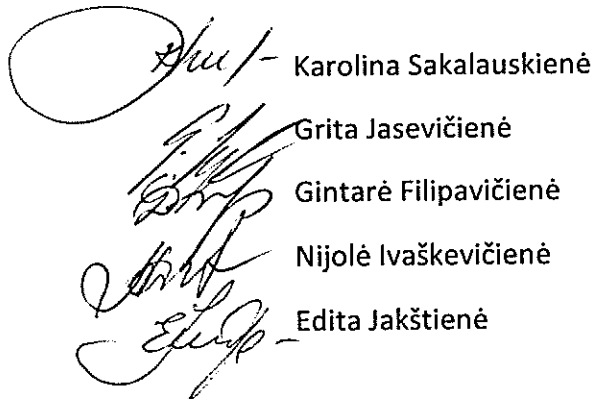 Karolina Sakalauskienė
Grita Jasevičienė
Gintarė Filipavičienė
Nijolė Ivaškevičienė
Edita Jakštienė